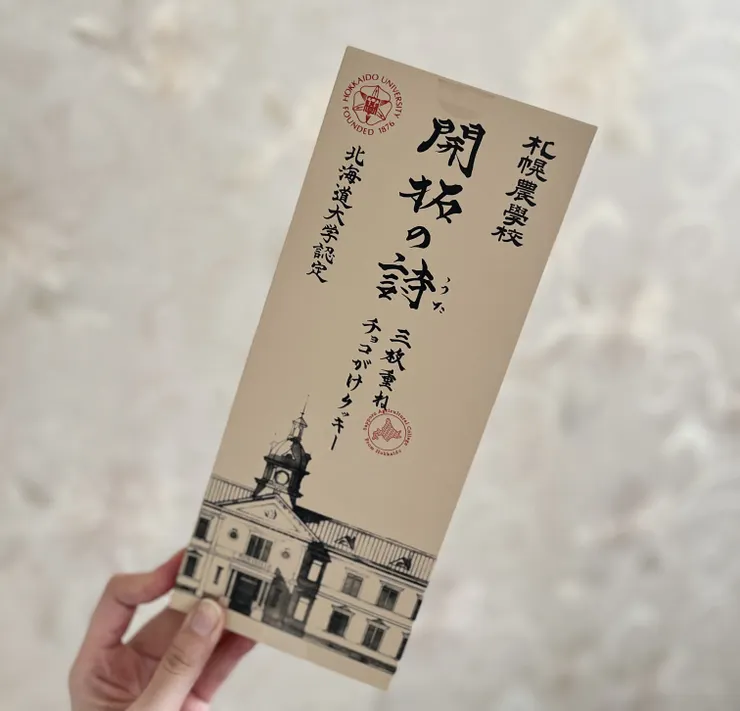 札幌農學校
開拓の詩
うた
三枚重ね
チョコがけクッキー
北海道大学認定
HOKKAIDO UNIVERSITY
FOUNDED 1876
Sapporo Agricultural College
From Hokkaido